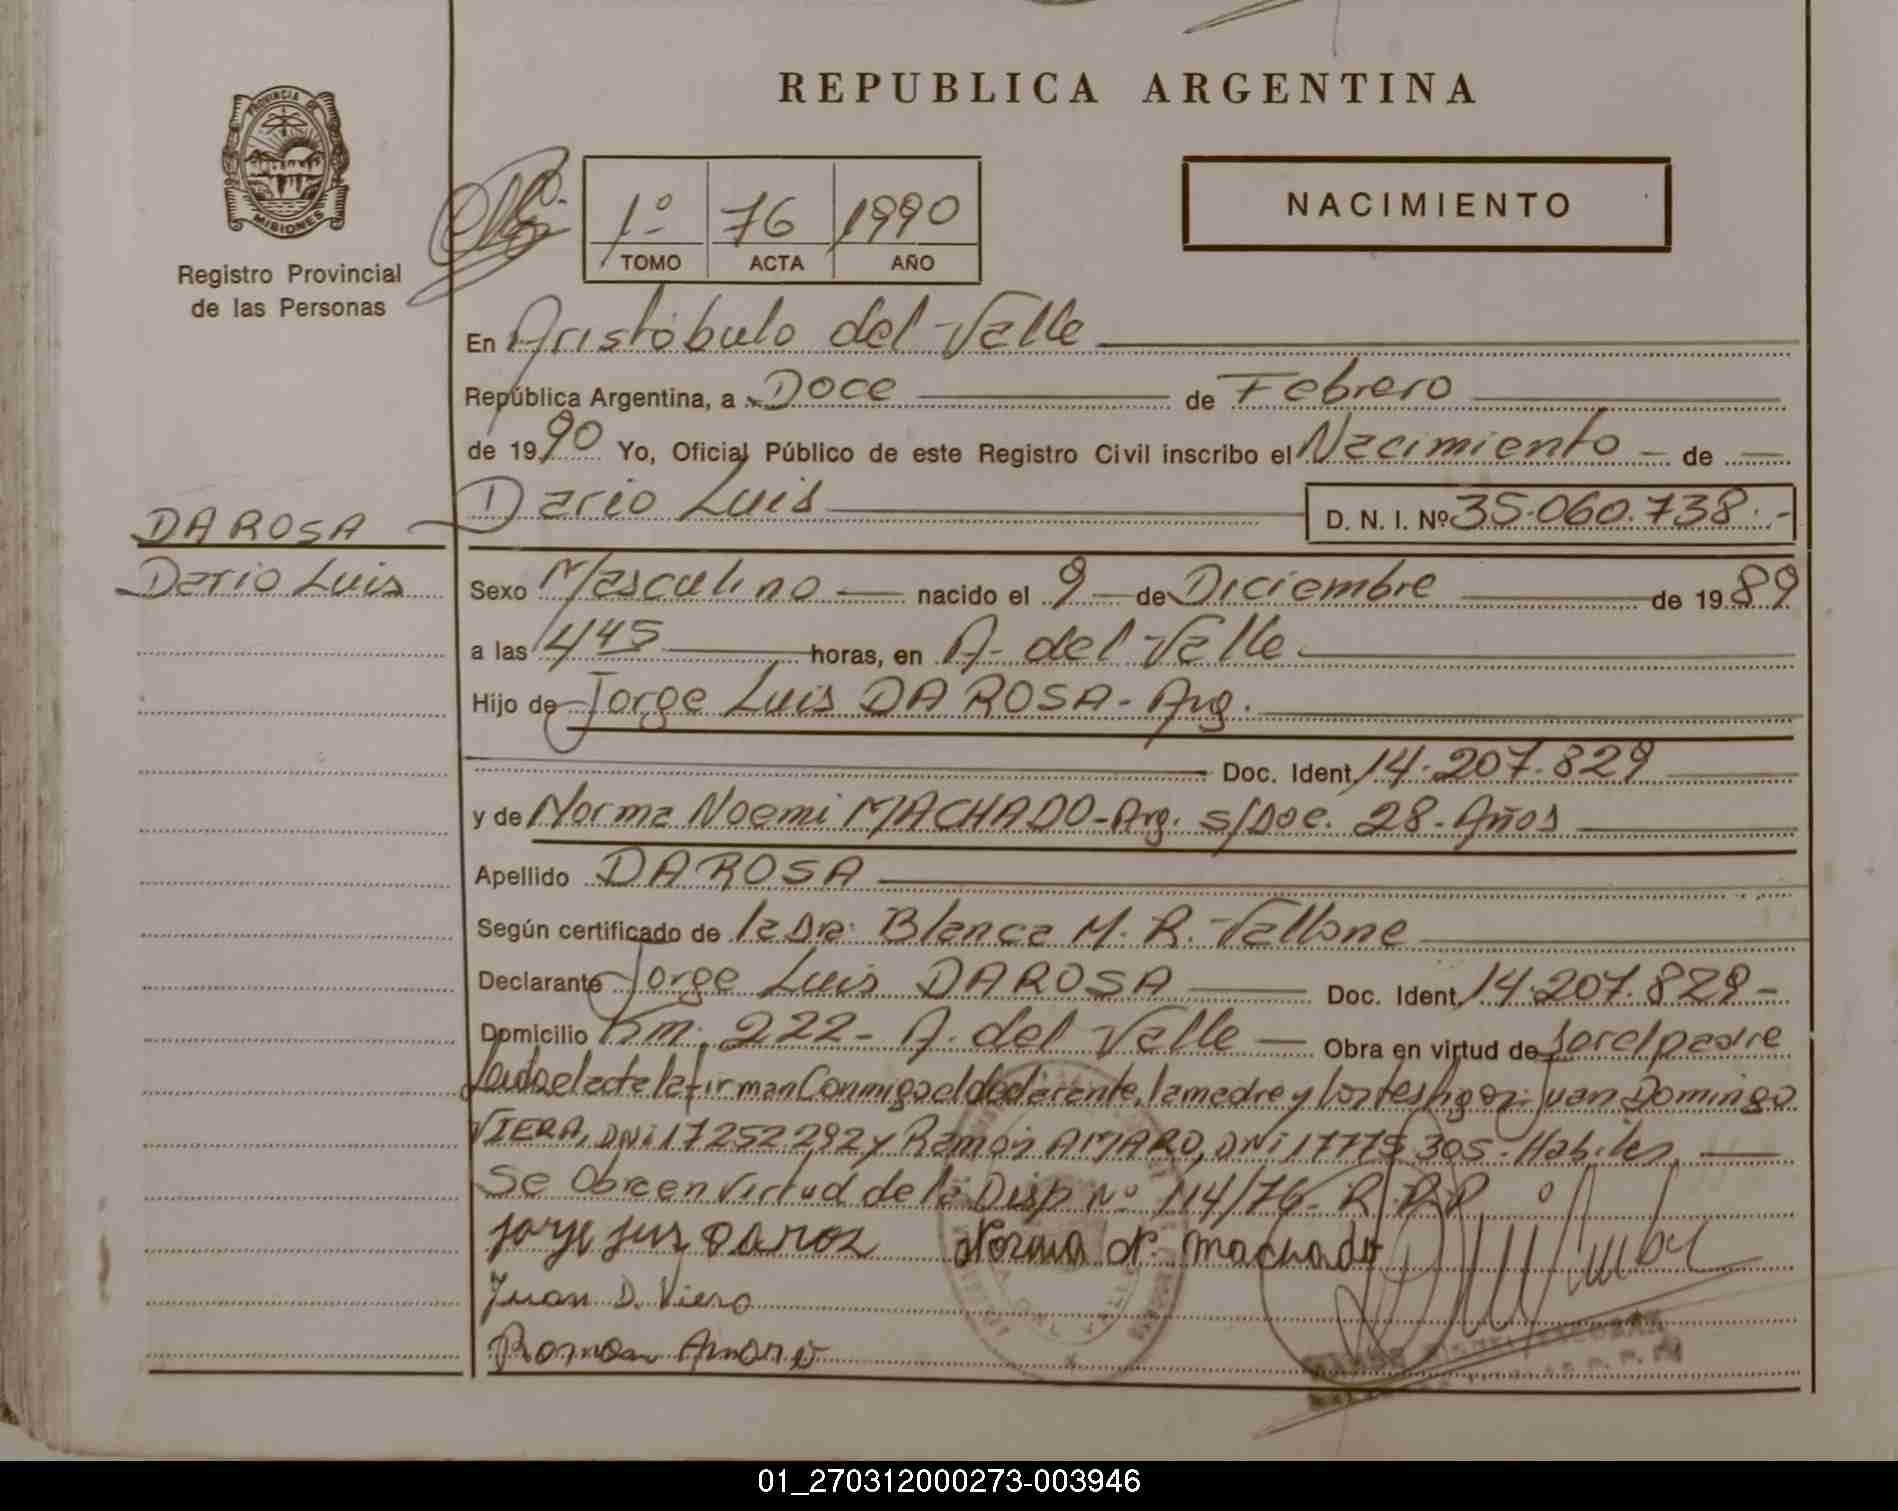 REPUBLICA ARGENTINA
PROVINCIA DE
MISIONES
Registro Provincial
de las Personas
1º 76 1990
TOMO ACTA AÑO
NACIMIENTO
En Aristóbulo del Valle
República Argentina, a Doce de Febrero
de 1990 Yo, Oficial Público de este Registro Civil inscribo el Nacimiento de
Dario Luis D. N. I. Nº 35.060.738.-
DA ROSA
Dario Luis
Sexo Masculino nacido el 9 de Diciembre de 1989
a las 4 45 horas, en A. del Valle
Hijo de Jorge Luis DA ROSA - Arg.
Doc. Ident. 14.207.829
y de Norma Noemi MACHADO - Arg. s/Doc. 28 - Años
Apellido DA ROSA
Según certificado de la Dra. Blanca M. R. Vallone
Declarante Jorge Luis DA ROSA Doc. Ident. 14.207.829 -
Domicilio Km. 222 - A. del Valle Obra en virtud de ser el padre
Leida el acta la firman Conmigo el declarante, la madre y los testigos: Juan Domingo
VIERA, DNI 17252292 y Ramón AMARO, DNI 17775305 - Habiles,
Se Obra en Virtud de la Disp Nº 114/76 - R.P.P
Jorge Luis DA ROZA Norma N. Machado
Juan D. Viera
Ramon Amaro
01_270312000273-003946